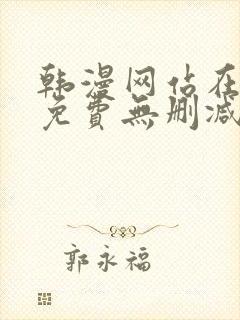 韩漫网站在
免費無删减
郭永福